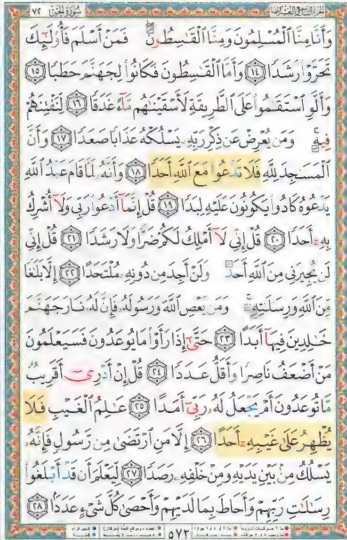 ٧٢ سُورَةُ الجِنِّ
وَأَنَّا مِنَّا ٱلْمُسْلِمُونَ وَمِنَّا ٱلْقَٰسِطُونَ ۖ فَمَنْ أَسْلَمَ فَأُو۟لَٰٓئِكَ
تَحَرَّوْا۟ رَشَدًا ١٤ وَأَمَّا ٱلْقَٰسِطُونَ فَكَانُوا۟ لِجَهَنَّمَ حَطَبًا ١٥
وَأَلَّوِ ٱسْتَقَٰمُوا۟ عَلَى ٱلطَّرِيقَةِ لَأَسْقَيْنَٰهُم مَّآءً غَدَقًا ١٦ لِّنَفْتِنَهُمْ
فِيهِ ۚ وَمَن يُعْرِضْ عَن ذِكْرِ رَبِّهِۦ يَسْلُكْهُ عَذَابًا صَعَدًا ١٧ وَأَنَّ
ٱلْمَسَٰجِدَ لِلَّهِ فَلَا تَدْعُوا۟ مَعَ ٱللَّهِ أَحَدًا ١٨ وَأَنَّهُۥ لَمَّا قَامَ عَبْدُ ٱللَّهِ
يَدْعُوهُ كَادُوا۟ يَكُونُونَ عَلَيْهِ لِبَدًا ١٩ قُلْ إِنَّمَآ أَدْعُوا۟ رَبِّى وَلَآ أُشْرِكُ
بِهِۦٓ أَحَدًا ٢٠ قُلْ إِنِّى لَآ أَمْلِكُ لَكُمْ ضَرًّا وَلَا رَشَدًا ٢١ قُلْ إِنِّى
لَن يُجِيرَنِى مِنَ ٱللَّهِ أَحَدٌ وَلَنْ أَجِدَ مِن دُونِهِۦ مُلْتَحَدًا ٢٢ إِلَّا بَلَٰغًا
مِّنَ ٱللَّهِ وَرِسَٰلَٰتِهِۦ ۚ وَمَن يَعْصِ ٱللَّهَ وَرَسُولَهُۥ فَإِنَّ لَهُۥ نَارَ جَهَنَّمَ
خَٰلِدِينَ فِيهَآ أَبَدًا ٢٣ حَتَّىٰٓ إِذَا رَأَوْا۟ مَا يُوعَدُونَ فَسَيَعْلَمُونَ
مَنْ أَضْعَفُ نَاصِرًا وَأَقَلُّ عَدَدًا ٢٤ قُلْ إِنْ أَدْرِىٓ أَقَرِيبٌ
مَّا تُوعَدُونَ أَمْ يَجْعَلُ لَهُۥ رَبِّىٓ أَمَدًا ٢٥ عَٰلِمُ ٱلْغَيْبِ فَلَا
يُظْهِرُ عَلَىٰ غَيْبِهِۦٓ أَحَدًا ٢٦ إِلَّا مَنِ ٱرْتَضَىٰ مِن رَّسُولٍ فَإِنَّهُۥ
يَسْلُكُ مِنۢ بَيْنِ يَدَيْهِ وَمِنْ خَلْفِهِۦ رَصَدًا ٢٧ لِّيَعْلَمَ أَن قَدْ أَبْلَغُوا۟
رِسَٰلَٰتِ رَبِّهِمْ وَأَحَاطَ بِمَا لَدَيْهِمْ وَأَحْصَىٰ كُلَّ شَىْءٍ عَدَدًۢا ٢٨
٥٧٣